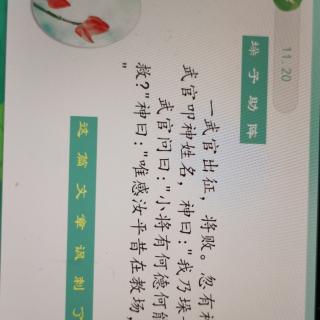 11.20
垛子助阵
一武官出征，将败。忽有
武官叩神姓名，神曰："我乃垛
武官问曰："小将有何德何能
救？"神曰："唯感汝平昔在教场，
"
这篇文章讽刺了